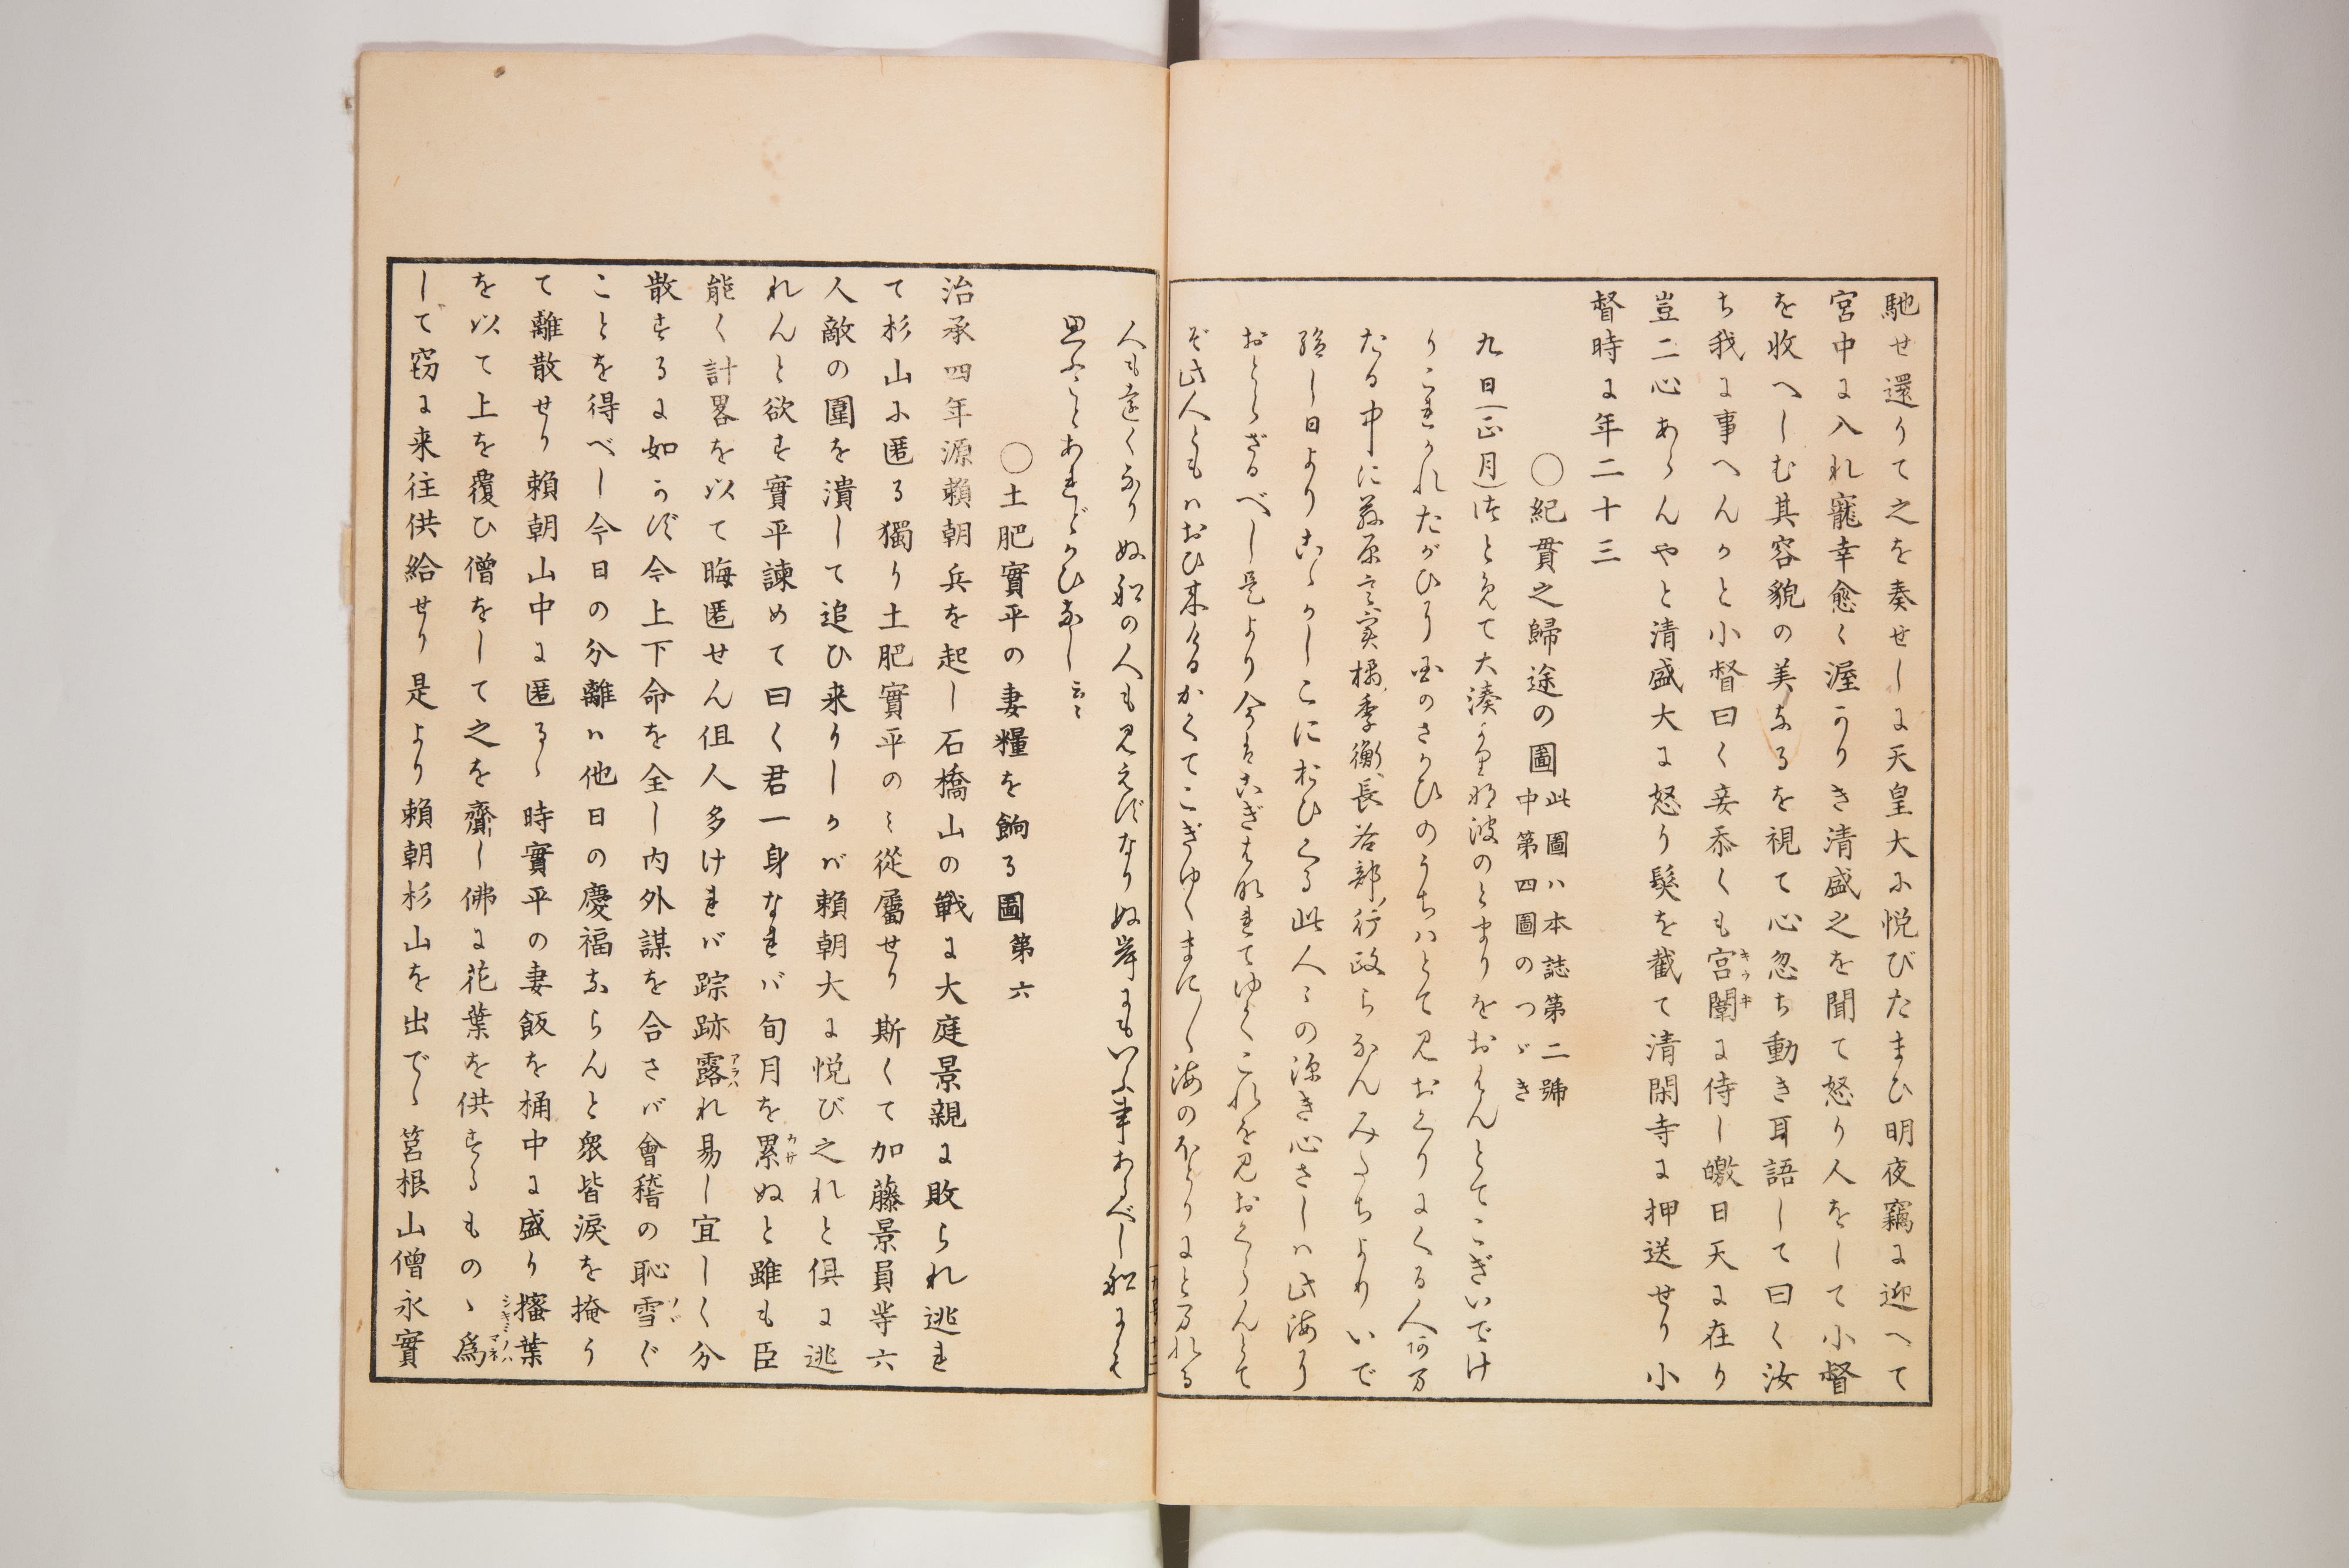 馳せ還りて之を奏せしに天皇大に悦びたまひ明夜竊に迎へて
宮中に入れ寵幸愈く渥かりき清盛之を聞て怒り人をして小督
を收へしむ其容貌の美なるを視て心忽ち動き耳語して曰く汝
ち我に事へんかと小督曰く妾忝くも宮闈に侍し皦日天に在り
豈二心あらんやと清盛大に怒り髮を截て清閑寺に押送せり小
督時に年二十三
○紀貫之歸途の圖 此圖ハ本誌第二號
中第四圖のつゞき
九日(正月)つとめて大湊より那波のとまりをおはんとてこぎいでけ
りこれかれたがひに國のさかひのうちハとて見おくりにくる人あま
たる中に藤原言実橘季衡長谷部行政らなんみたちよりいで
給し日よりこゝかしこにおひくる此人々の深き心さしハ此海に
おとらざるべし是より今はこぎはなれてゆくこれを見おくらんとて
ぞ此人ともハおひ来けるかくてこぎゆくまに〳〵海のほとりにとまれる
人も遠くなりぬ船の人も見えずなりぬ岸にもいふ事あるべし船にも
思ふことあれどかひなし云々
○土肥實平の妻糧を餉る圖第六
治承四年源賴朝兵を起し石橋山の戦に大庭景親に敗られ逃れ
て杉山に匿る獨り土肥實平のミ從屬せり斯くて加藤景員等六
人敵の圍を潰して追ひ来りしかバ賴朝大に悦び之れと俱に逃
れんと欲す實平諫めて曰く君一身なれバ旬月を累ぬと雖も臣
能く計畧を以て晦匿せん但人多けれバ踪跡露れ易し宜しく分
散するに如かず今上下命を全し内外謀を合さバ會稽の恥雪ぐ
ことを得べし今日の分離ハ他日の慶福ならんと衆皆淚を掩う
て離散せり賴朝山中に匿るゝ時實平の妻飯を桶中に盛り櫁葉
を以て上を覆ひ僧をして之を齎し佛に花葉を供するものゝ爲
して窃に来往供給せり是より賴朝杉山を出でゝ筥根山僧永實